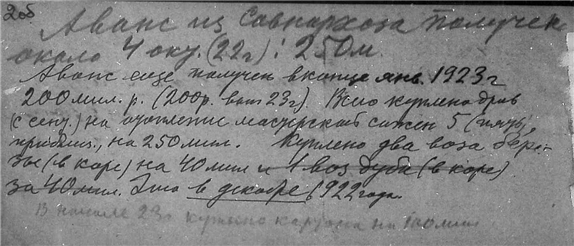 208
Аванс из Совнархоза получен
около 4 окт. (22 г): 250 м.
Аванс еще получен в конце янв. 1923 г
200 мил. р. (200 р. вып 23 г). куплено дров
(с сену.) на отопление мастерской сажен 5 (пять)
приблиз., на 250 мил. Куплено два воза бере-
зы (в коре) на 40 мил и 1 воз дуба (в коре)
за 10 мил. Это в декабре 1922 года.
В начале 23 г куплено на 100 мил